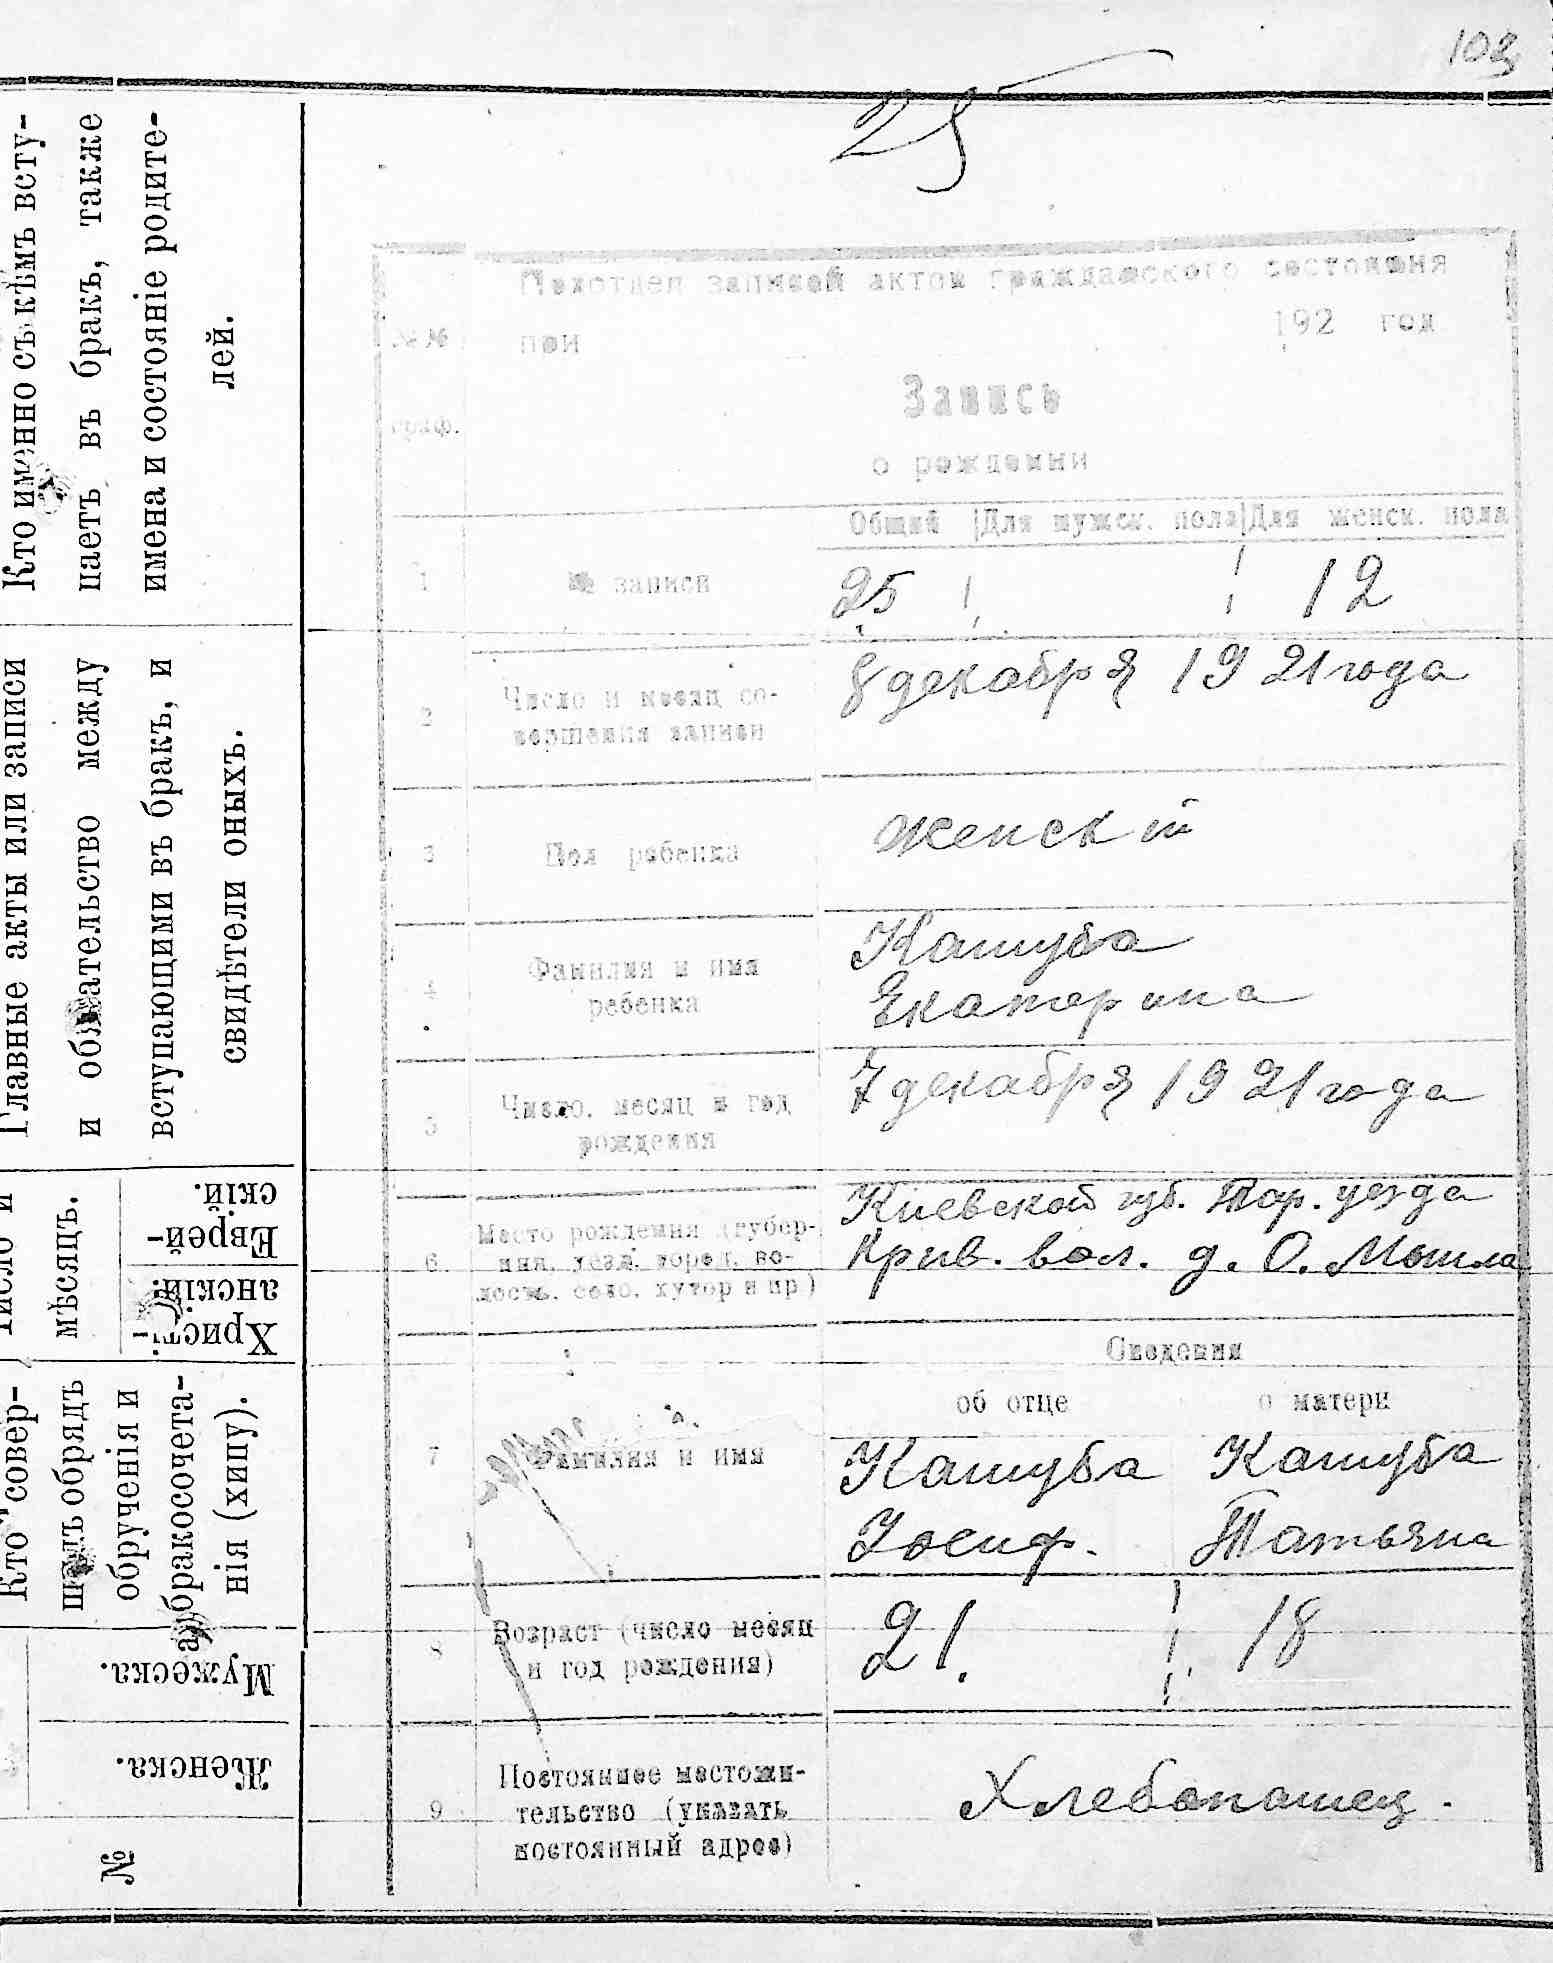 103
25
Кто именно съ кѣмъ всту-
паетъ въ бракъ, также
имена и состояніе родите-
лей.
Главные акты или записи
и обязательство между
вступающими въ бракъ, и
свидѣтели оныхъ.
Число и
мѣсяцъ.
Еврей-
скій.
Христі-
анскій.
Кто совер-
шалъ обрядъ
обрученія и
бракосочета-
нія (хипу).
Мужеска.
Женска.
№
№№
граф.
Подотдел записей актов гражданского состояния
при 192 год
Запись
о рождении
Общий Для мужск. пола Для женск. пола
1 № записи 25 12
2 Число и месяц со-
вершения записи
8 декабря 1921 года
3 Пол ребенка женский
4 Фамилия и имя
ребенка
Кашуба
Екатерина
5 Число, месяц и год
рождения
7 декабря 1921 года
6 Место рождения (губер-
ния, уезд, город, во-
лость, село, хутор и пр)
Киевской губ. Тар. уезда
Крив. вол. д. О. Могила
Сведения
об отце о матери
7 Фамилия и имя
Кашуба Кашуба
Иосиф. Татьяна
8 Возраст (число месяц
и год рождения)
21. 18
9 Постоянное местожи-
тельство (указать
постоянный адрес)
Хлебопашец.